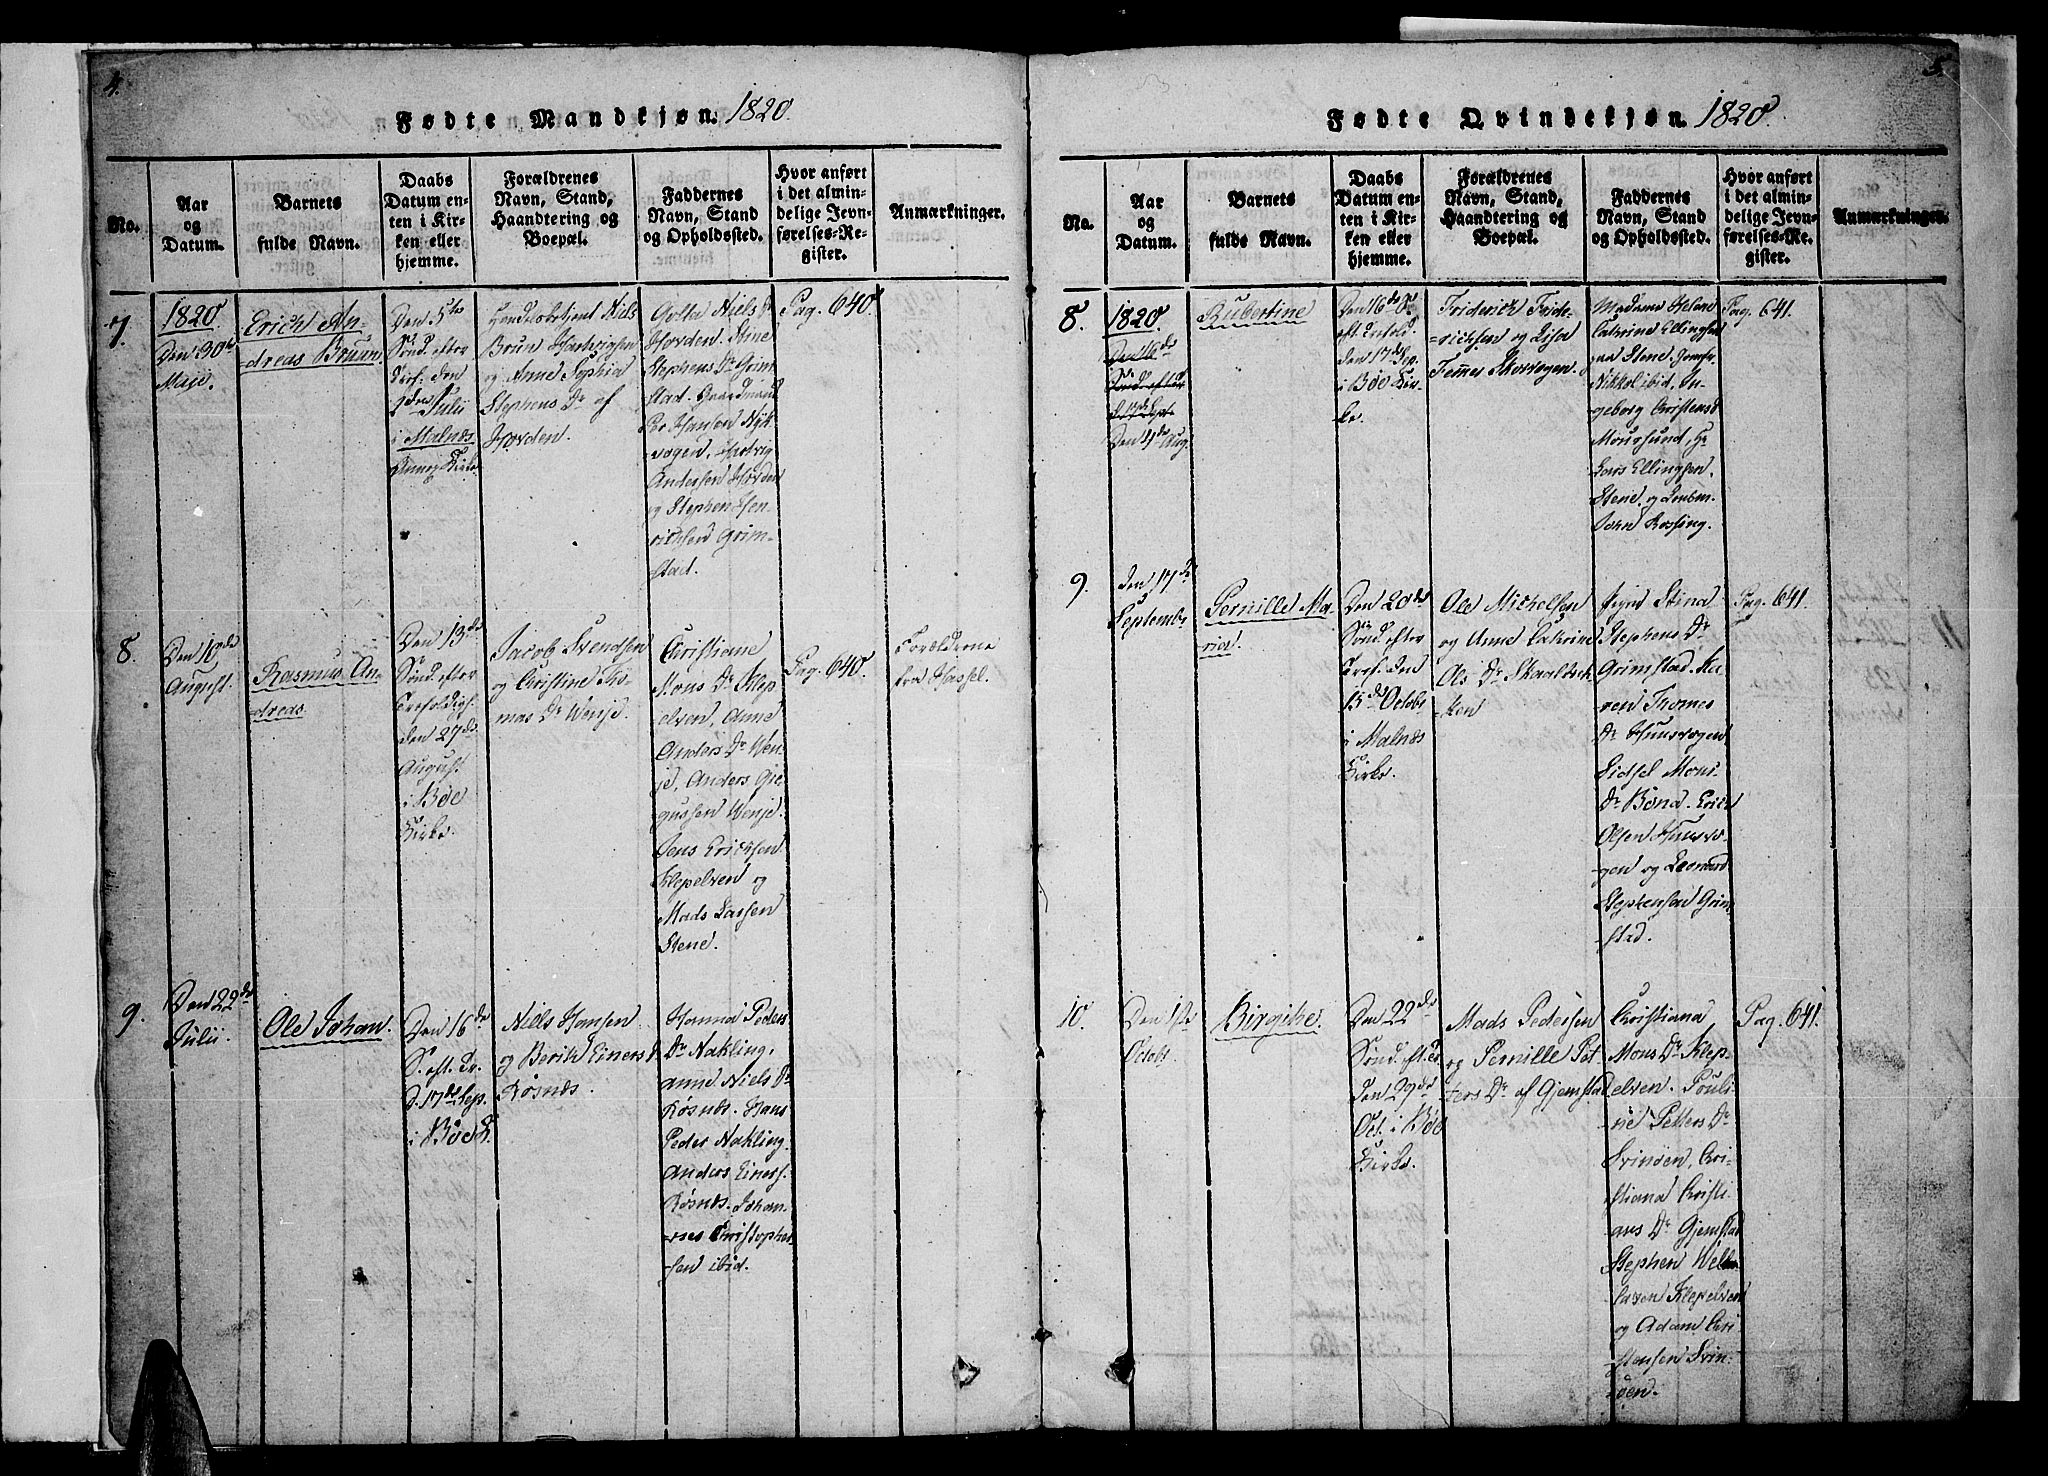 4.
Fødte Mandkjøn. 1820.
No.
Aar
og
Datum.
Barnets
fulde Navn.
Daabs
Datum en-
ten i Kir-
ken eller
hjemme.
Forældrenes
Navn, Stand,
Haandtering og
Boepæl.
Faddernes
Navn, Stand
og Opholdssted.
Hvor anført
i det almin-
delige Jevn-
førelses-Re-
gister.
Anmærkninger.
7.
1820
Den 30te
Maje.
Erich An-
dreas Bruun
Den 5te
Sönd. efter
Tref. den
2den Julii
i Malnæs
Annex Kirke
Niels
Brun Hartvigsen
og Anne Sophia
Stephens Dr af
Hovden.
Golla Niels Dr
Hovden. Ane
Stephens Dr Grim-
stad. Gaardmænd
Per Hansen Nyk-
vogen, Hartvig
Andersen Hovden
og Stephen Hen-
richsen Grim-
stad.
Pag. 640
8.
Den 10de
August.
Rasmus An-
dreas
Den 13de
Sönd. efter
Trefoldigh.
den 27de
August
i Böe
Kirke.
Jacob Svendsen
og Christine Tho-
mas Dr Wenje.
Christiane
Mons Dr Klep-
elven, Anne
Anders Dr Wen-
je, Anders Gre-
gussen Wenje.
Jens Ericksen
Klepelven og
Mads Larsen
Stene.
Pag. 640.
Forælderne
fra Hassel.
9.
Den 22de
Julii.
Ole Johan.
Den 16de
S. eft. Tr.
D. 17de Sep.
i Böe K.
Niels Hansen
og Berith Einers D
Rösnæs.
Hanna Peders
Dr Nakling.
Anne Niels Dr
Rösnæs. Hans
Peder Nakling.
Anders Einers.
Rösnæs. Johan-
nes Christopher-
sen ibid.
5.
Fødte Qvindekjøn. 1820.
No.
Aar
og
Datum.
Barnets
fulde Navn.
Daabs
Datum en-
ten i Kir-
ken eller
hjemme.
Forældrenes
Navn, Stand,
Haandtering og
Boepæl.
Faddernes
Navn, Stand
og Opholdssted.
Hvor anført
i det almin-
delige Jevn-
førelses-Re-
gister.
Anmærkninger.
8.
1820.
Den 16de
Sönd. efter
Den Aug.
Rubertine
Den 16de S.
eft. Trefold.
den 17de Sep.
i Böe Kir-
ke.
Friderich Fride-
richsen og Lisa
Skorvogen.
Madame Helene
Cathrine Ellingsen
paa Stene. Jomfr.
Nikkol ibid, In-
geborg Christens D
Mougsund, Hr
Lars Ellingsen.
Stene, og
John Rossing.
Pag. 641.
9.
Den 17de
Septembr
Pernille Ma-
ria.
Den 20de
Sönd. efter
Tref. den
15de Octobr
i Malnæs
Kirke.
Ole Michelsen
og Anne Cathrine
Ols Dr Skaalbrek-
ken
Stina
Stephens Dr
Grimstad. Ka-
ren Thomes
Dr Huusvogen
Sidsel Mons
Dr Böna. Erich
Olsen Huusvo-
gen og Leonard
Stephensen Grim-
stad.
Pag. 641.
10.
Den 1ste
Octobr.
Birgithe.
Den 22de
Sönd. eft. Tr.
Den 29de
Oct. i Böe
Kirke.
Mads Pedersen
og Pernille Pet-
ters Dr af Gjemstad
Christiana
Mons Dr Klep-
elven. Pouli-
ne Petters Dr
Svinöen, Chri-
stiana Christi-
ans Dr Gjemstad
Stephen
Larsen Klepelven
og Adam Chri-
stensen Svin-
öen.
Pag. 641.